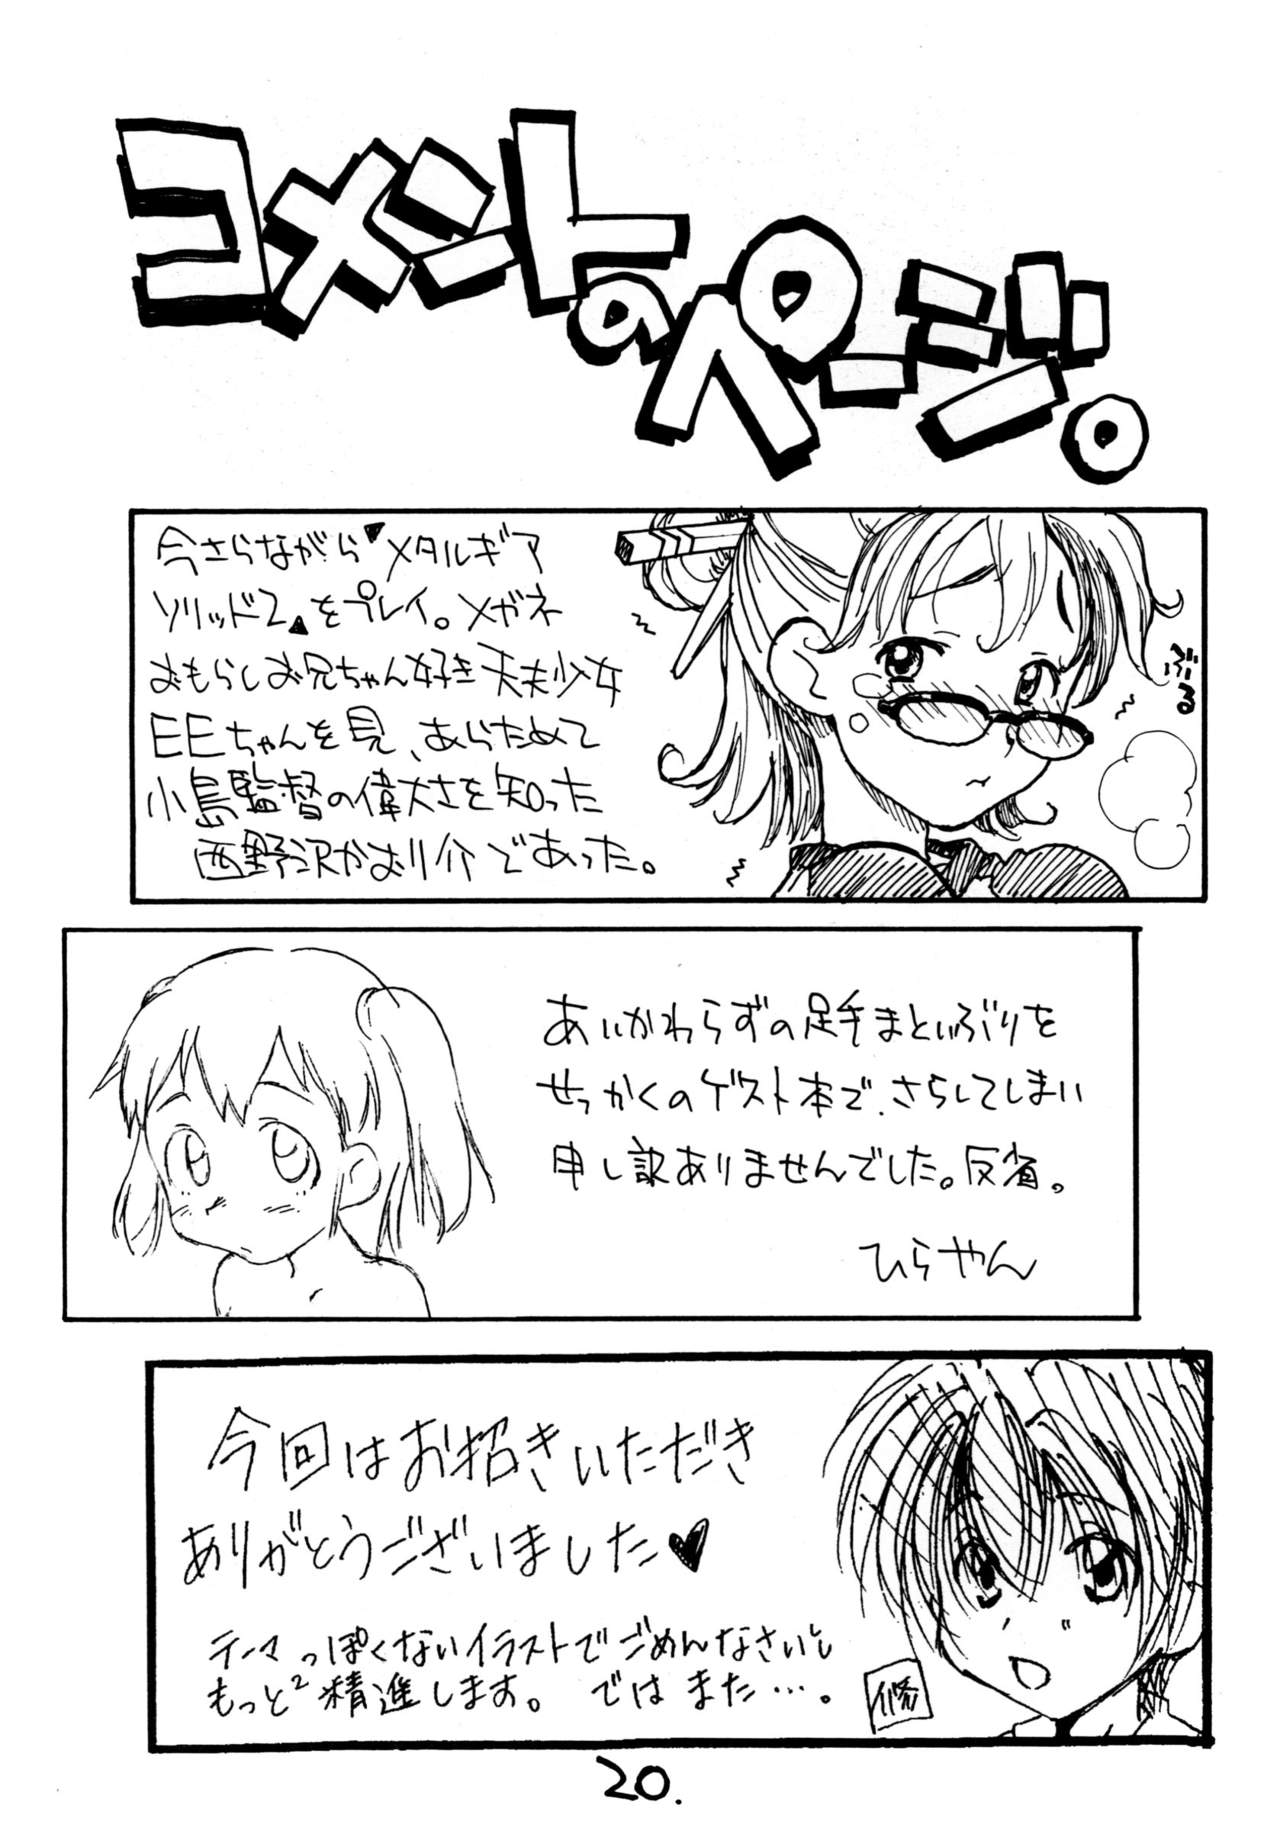 コメントのページ。
今さらながら"メタルギア
ソリッド2"をプレイ。メガネ
おもらしお兄ちゃん好き天才少女
EEちゃんを見、あらためて
小島監督の偉大さを知った
西野沢かおり介であった。
ぶるる
あいかわらずの足手まといぶりを
せっかくのゲスト本で、さらしてしまい
申し訳ありませんでした。反省。
ひらやん
今回はお招きいただき
ありがとうございました♥
テーマっぽくないイラストでごめんなさい。
もっと²精進します。 ではまた…。
修
20.